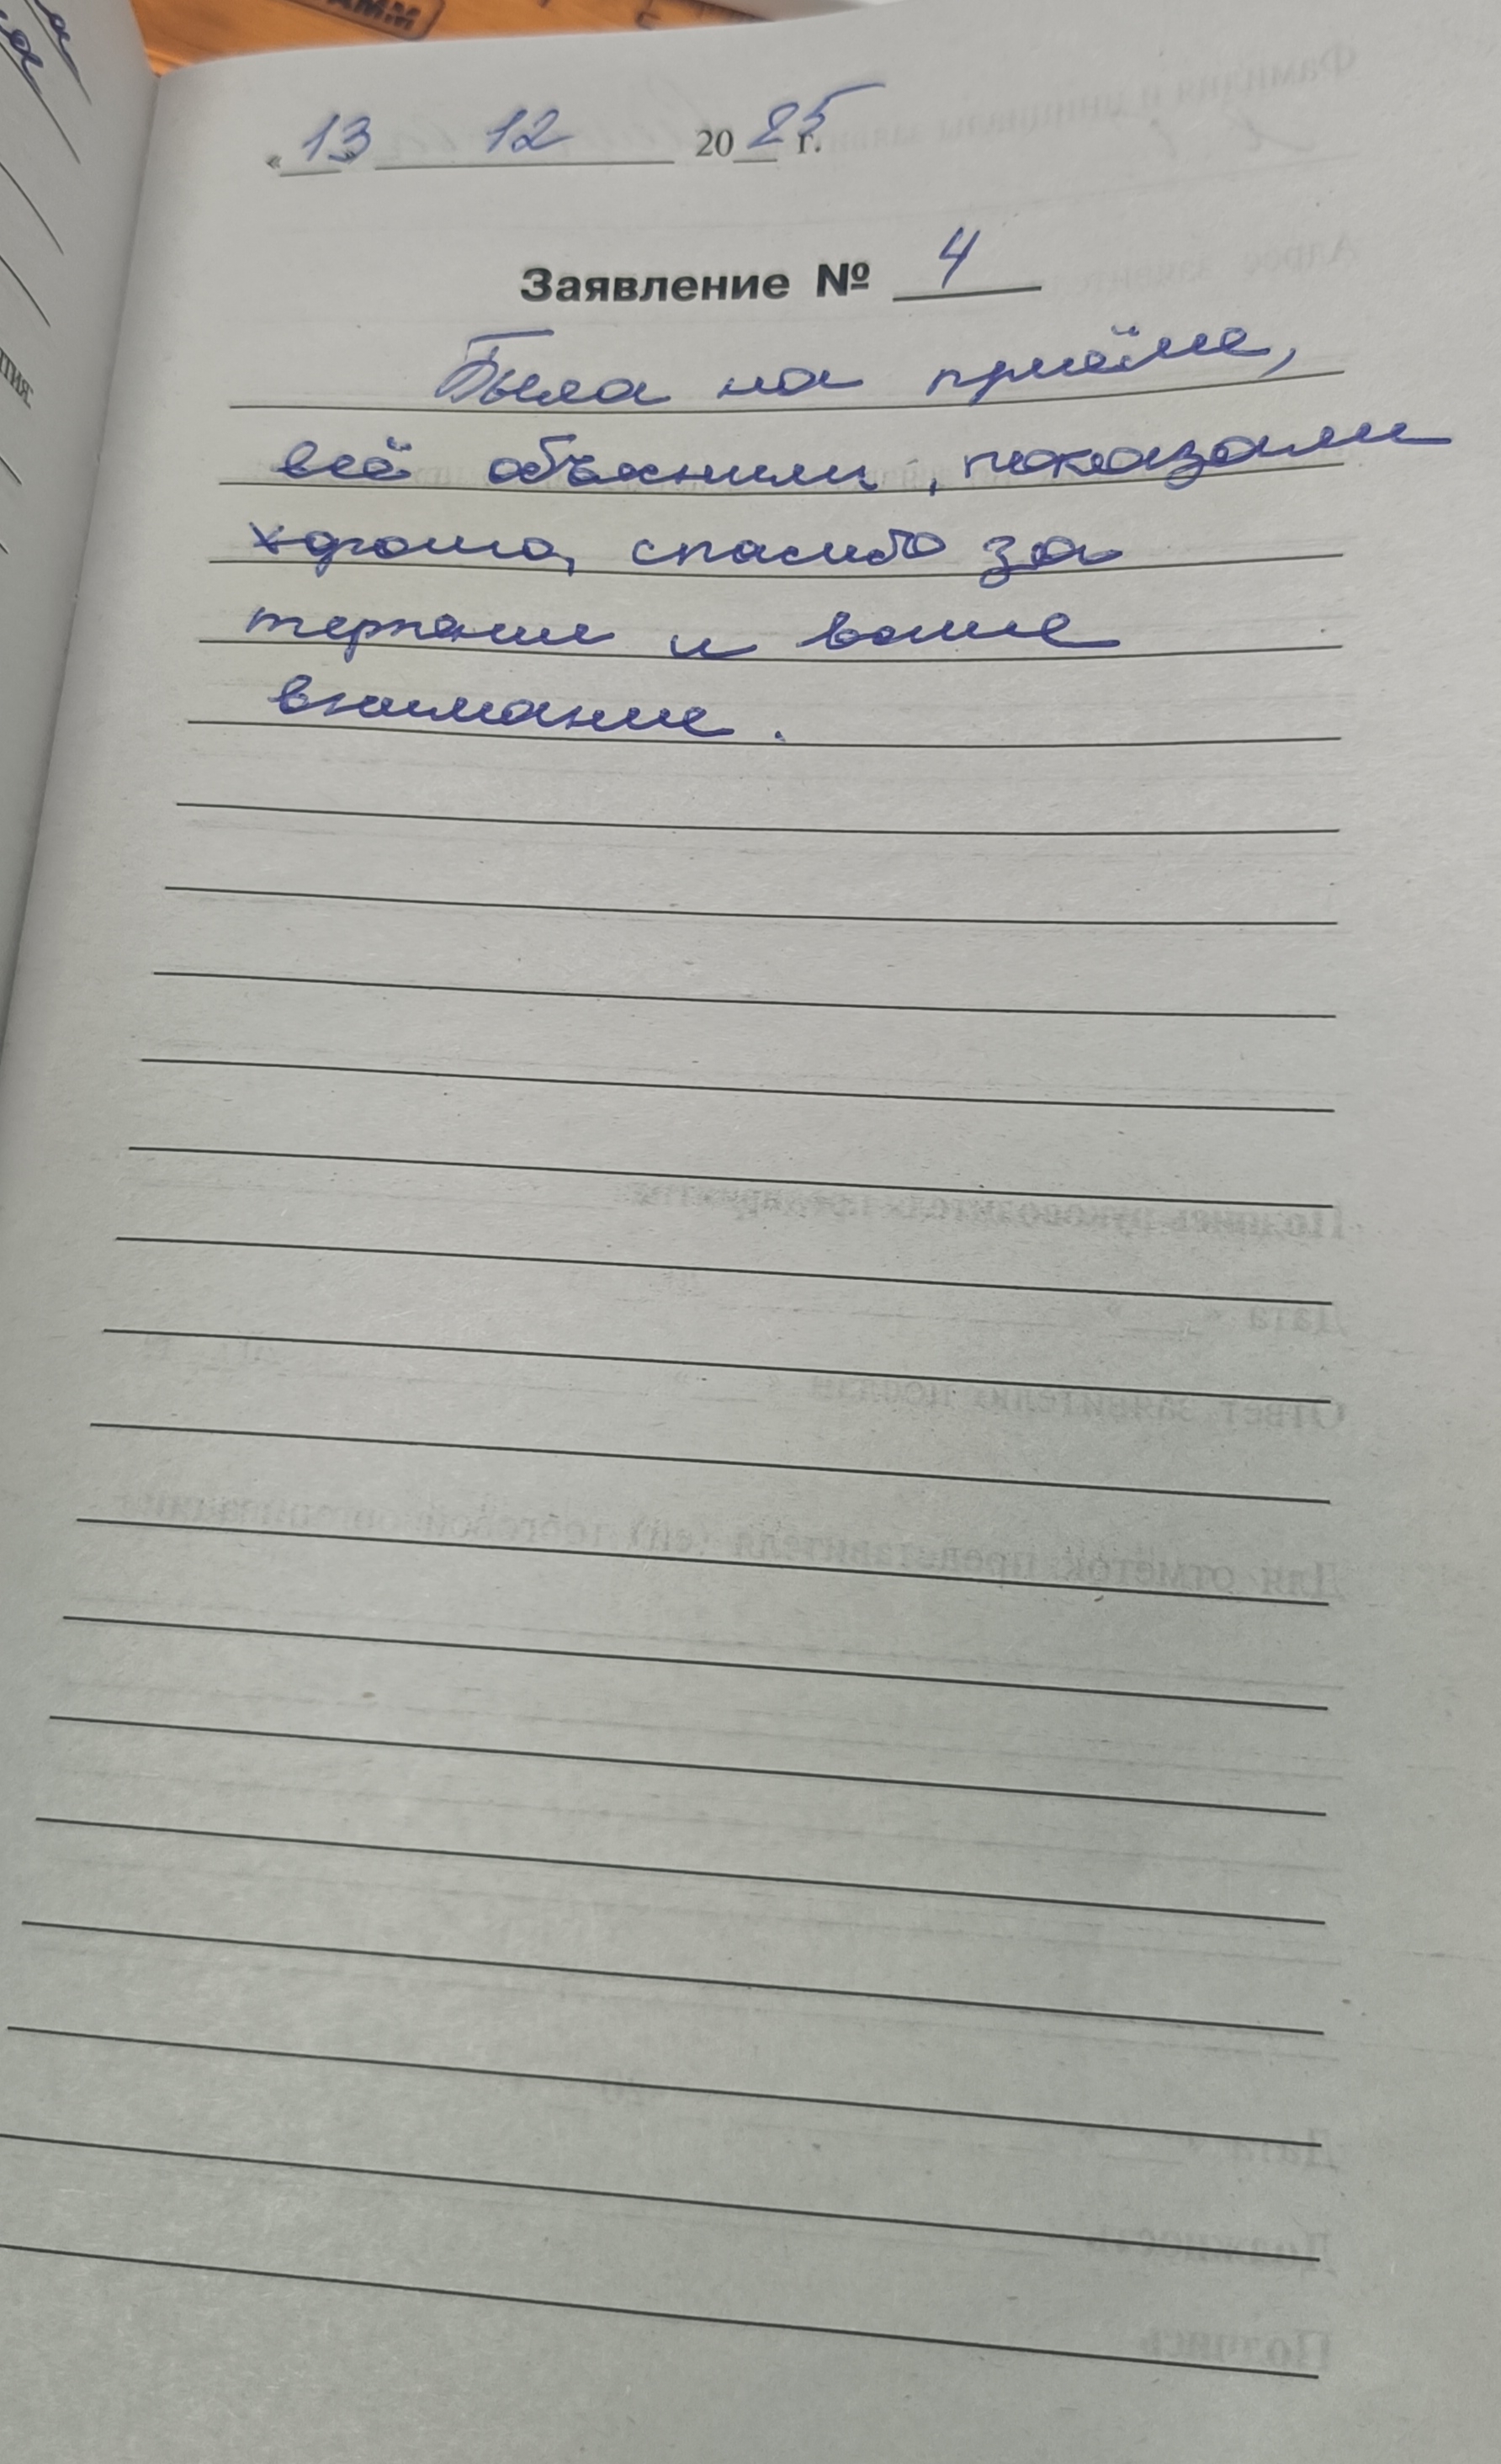 «13» 12 2025 г.
Заявление № 4
Была на приёме,
всё объяснили, показали
хорошо, спасибо за
терпение и ваше
внимание.